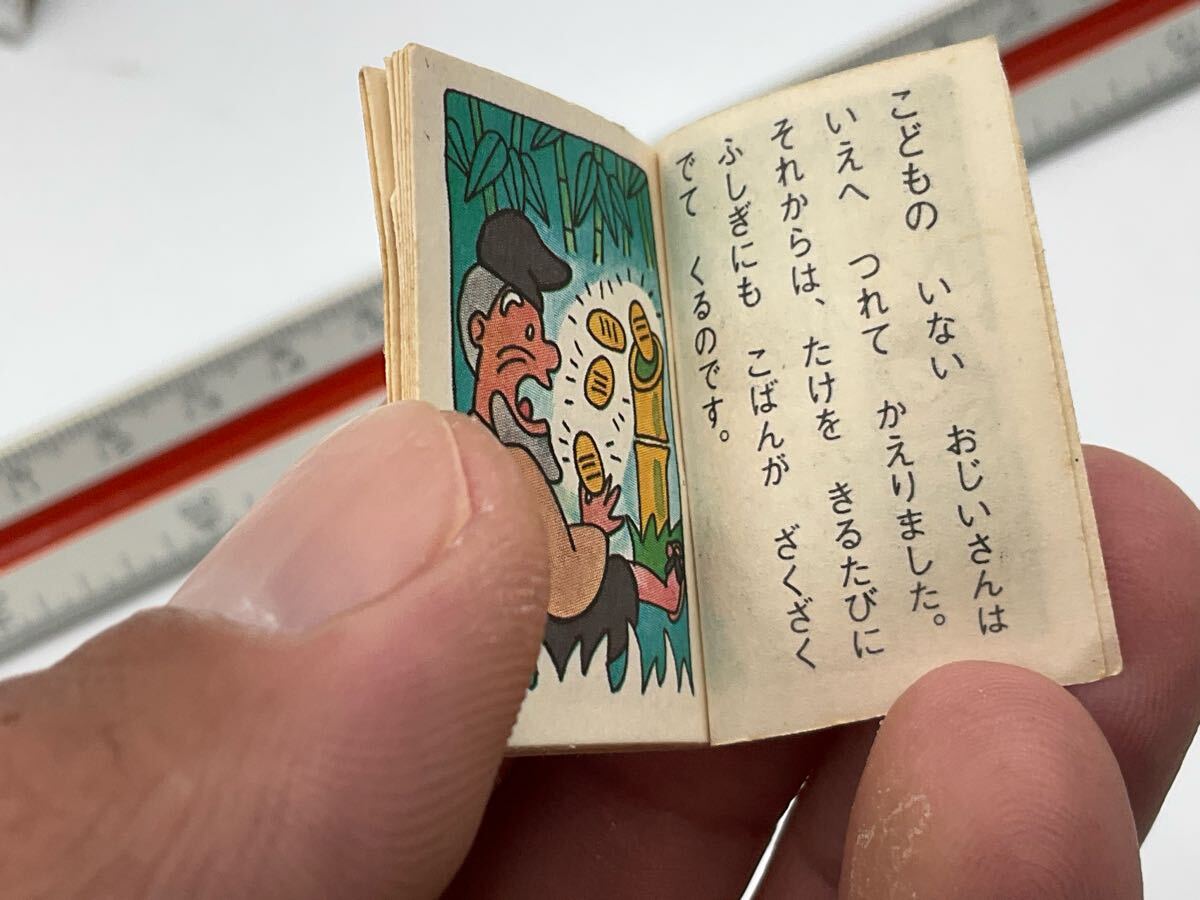 こどもの　いない　おじいさんは
いえへ　つれて　かえりました。
それからは、たけを　きるたびに
ふしぎにも　こばんが　ざくざく
でて　くるのです。